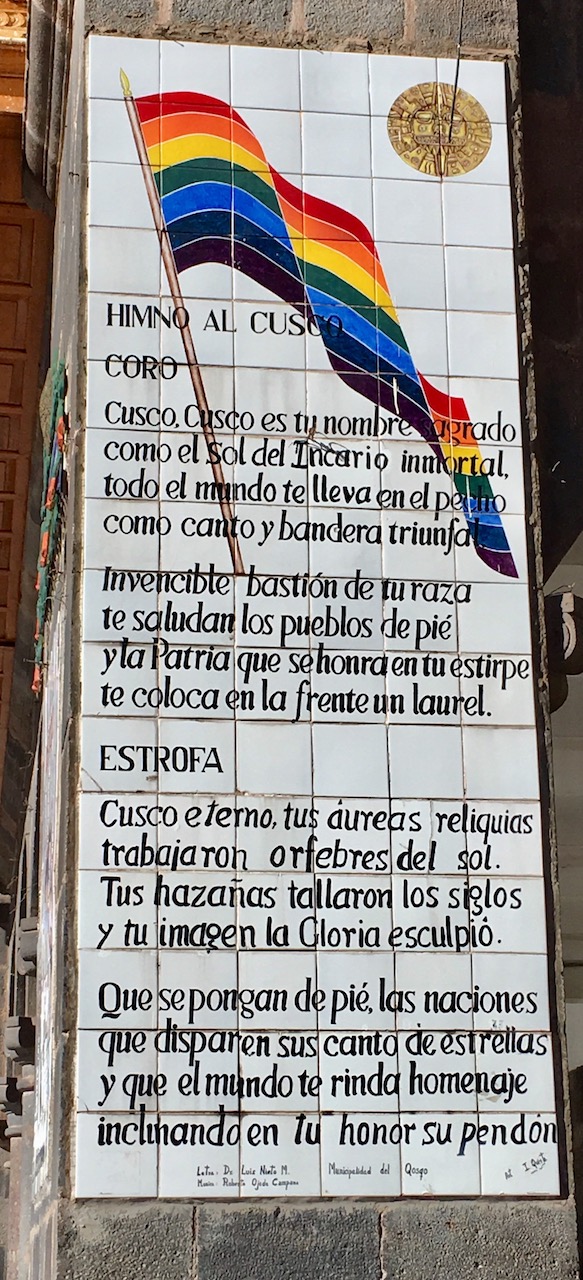 HIMNO AL CUSCO
CORO
Cusco, Cusco es tu nombre sagrado
como el Sol del Incario inmortal,
todo el mundo te lleva en el pecho
como canto y bandera triunfal.
Invencible bastión de tu raza
te saludan los pueblos de pié
y la Patria que se honra en tu estirpe
te coloca en la frente un laurel.
ESTROFA
Cusco eterno, tus áureas reliquias
trabajaron orfebres del sol.
Tus hazañas tallaron los siglos
y tu imagen la Gloria esculpió.
Que se pongan de pié, las naciones
que disparen sus canto de estrellas
y que el mundo te rinda homenaje
inclinando en tu honor su pendón
Letra: Dr. Luis Nieto M. Municipalidad del Qosqo
Música: Roberto Ojeda Campana